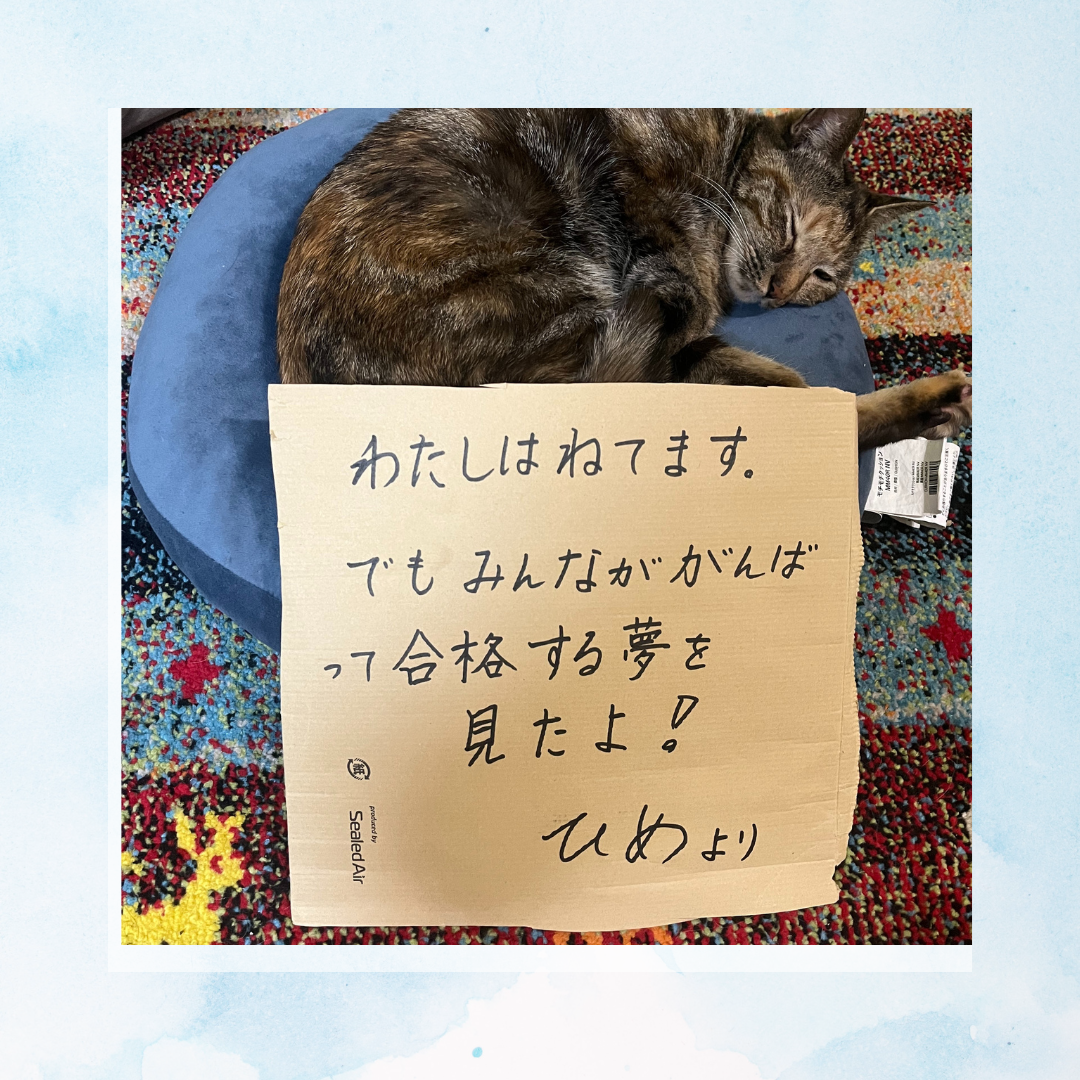 わたしはねてます。
でもみんながががんば
って合格する夢を
見たよ！
ひめより
紙
produced by
Sealed Air
モチモチクッション